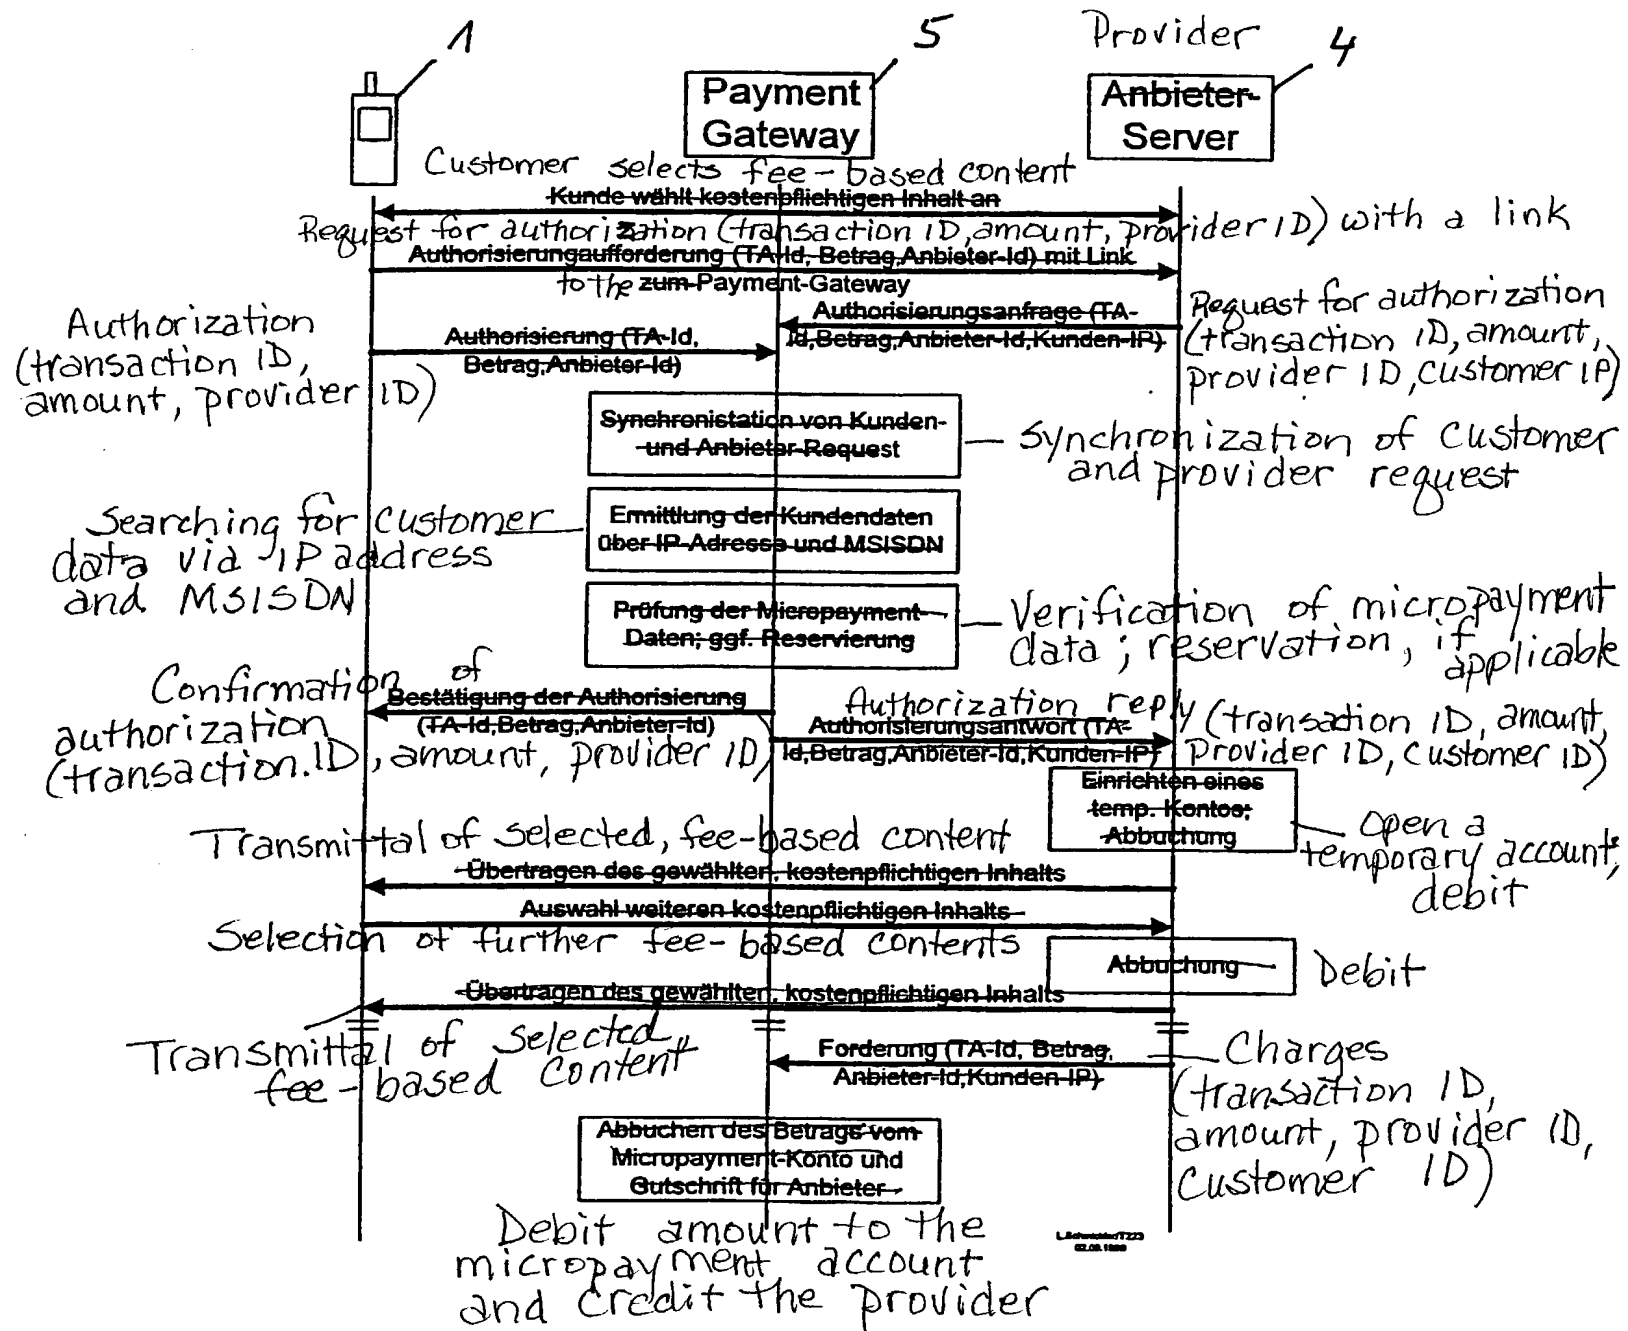 1
5
Provider
4
Payment
Gateway
Anbieter-
Server
Customer selects fee-based content
Kunde wählt kostenpflichtigen Inhalt an
Request for authorization (transaction ID, amount, provider ID) with a link
Authorisierungaufforderung (TA-Id, Betrag,Anbieter-Id) mit Link
to the zum Payment-Gateway
Authorization
(transaction ID,
amount, provider ID)
Authorisierung (TA-Id,
Betrag,Anbieter-Id)
Authorisierungsanfrage (TA-
Id,Betrag,Anbieter-Id,Kunden-IP)
Request for authorization
(transaction ID, amount,
provider ID, customer IP)
Synchronistation von Kunden-
und Anbieter-Request
Synchronization of customer
and provider request
Searching for customer
data via IP address
and MSISDN
Ermittlung der Kundendaten
über IP-Adresse und MSISDN
Prüfung der Micropayment-
Daten; ggf. Reservierung
Verification of micropayment
data; reservation, if
applicable
Confirmation of
authorization
(transaction.ID, amount, provider ID)
Bestätigung der Authorisierung
(TA-Id,Betrag,Anbieter-Id)
Authorization reply (transaction ID, amount,
Provider ID, customer ID)
Authorisierungsantwort (TA-
Id,Betrag,Anbieter-Id,Kunden-IP)
Einrichten eines
temp. Kontos;
Abbuchung
open a
temporary account;
debit
Transmittal of selected, fee-based content
Übertragen des gewählten, kostenpflichtigen Inhalts
Auswahl weiteren kostenpflichtigen Inhalts
Selection of further fee-based contents
Abbuchung
Debit
Übertragen des gewählten, kostenpflichtigen Inhalts
Transmittal of selected,
fee-based content
Forderung (TA-Id, Betrag,
Anbieter-Id,Kunden-IP)
Charges
(transaction ID,
amount, provider ID,
customer ID)
Abbuchen des Betrags vom
Micropayment-Konto und
Gutschrift für Anbieter
Debit amount to the
micropayment account
and credit the provider